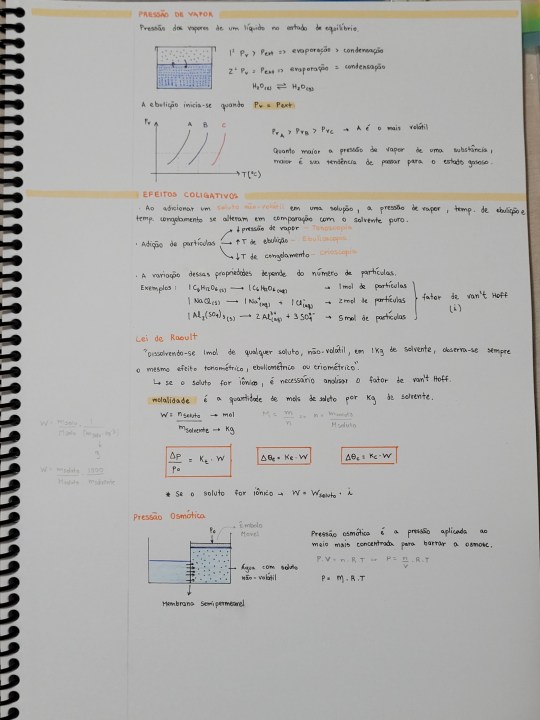 PRESSÃO DE VAPOR
Pressão dos vapores de um líquido no estado de equilíbrio.
1º Pv > Pext => evaporação > condensação
2º Pv = Pext => evaporação = condensação
H2O(l) ⇌ H2O(g)
A ebulição inicia-se quando Pv = Pext.
Pv
A B C
T(°C)
PvA > PvB > PvC → A é o mais volátil
Quanto maior a pressão de vapor de uma substância,
maior é sua tendência de passar para o estado gasoso.
EFEITOS COLIGATIVOS
· Ao adicionar um soluto não-volátil em uma solução, a pressão de vapor, temp. de ebulição e
temp. congelamento se alteram em comparação com o solvente puro.
↓ pressão de vapor → Tonoscopia
· Adição de partículas → ↑ T de ebulição → Ebulioscopia
↓ T de congelamento → Crioscopia
· A variação dessas propriedades depende do número de partículas.
Exemplos: 1 C6H12O6(s) → 1 C6H12O6(aq) → 1 mol de partículas
1 NaCl(s) → 1 Na+(aq) + 1 Cl-(aq) → 2 mol de partículas
1 Al2(SO4)3(s) → 2 Al3+(aq) + 3 SO4 → 5 mol de partículas
fator de van't Hoff
(i)
Lei de Raoult
"Dissolvendo-se 1mol de qualquer soluto, não-volátil, em 1Kg de solvente, observa-se sempre
o mesmo efeito tonométrico, ebuliométrico ou criométrico".
↳ se o soluto for iônico, é necessário analisar o fator de van't Hoff.
molalidade é a quantidade de mols de soluto por Kg de solvente.
W = nsoluto → mol
msolvente → Kg
Δp/p0 = Kt · W
Δθe = Ke · W
Δθc = Kc · W
* Se o soluto for iônico → W = Wsoluto · i
Pressão Osmótica
Êmbolo
Móvel
Água com soluto
não-volátil
Membrana Semipermeável
Pressão osmótica é a pressão aplicada ao
meio mais concentrada para barrar a osmose.
P.V = n.R.T → P = n/V .R.T
P = M.R.T